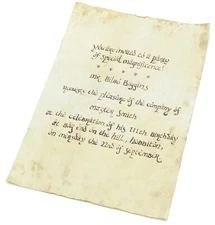 you are invited to a party
of special magnificence!
* * * * *
mr. Bilbo Baggins
requests the pleasure of the company of
Smith
at the celebration of his 111th birthday
at bag end on the hill, hobbiton,
on thursday the 22nd of September